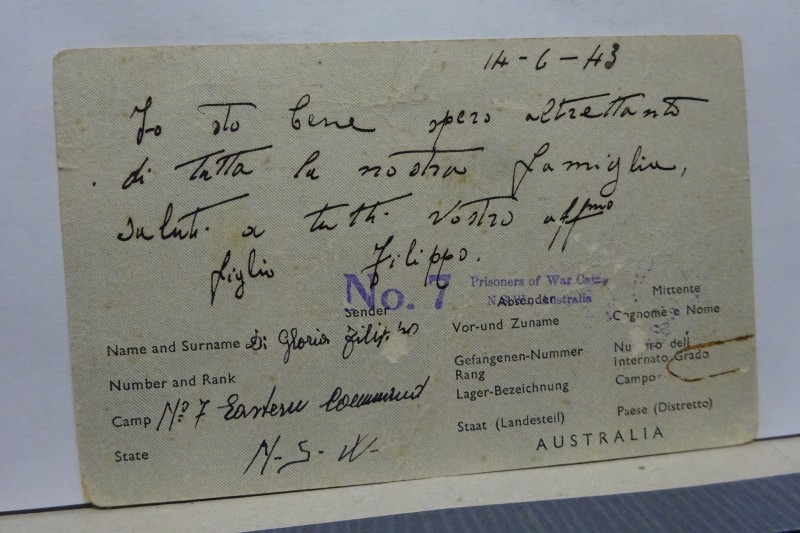 14-6-43
Io sto bene spero altrettanto
di tutta la nostra famiglia,
saluti a tutti vostro affmo
figlio Filippo.
No. 7
Prisoners of War Camp
N.S.W. Australia
Sender
Absender
Mittente
Name and Surname Di Gloria Filippo
Vor-und Zuname
Cognome e Nome
Number and Rank
Gefangenen-Nummer
Rang
Numero dell
Internato Grado
Camp No 7 Eastern Command
Lager-Bezeichnung
Campo
State N-S-W-
Staat (Landesteil)
Paese (Distretto)
AUSTRALIA